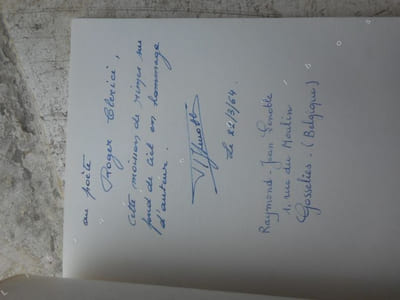 au poète
Roger Clerici,
Cette moisson de rimes sur
fond de ciel en hommage
d'auteur.
le 22/3/64.
Raymond-Jean Lenoble
1, rue du Moulin
Gosselies - (Belgique)